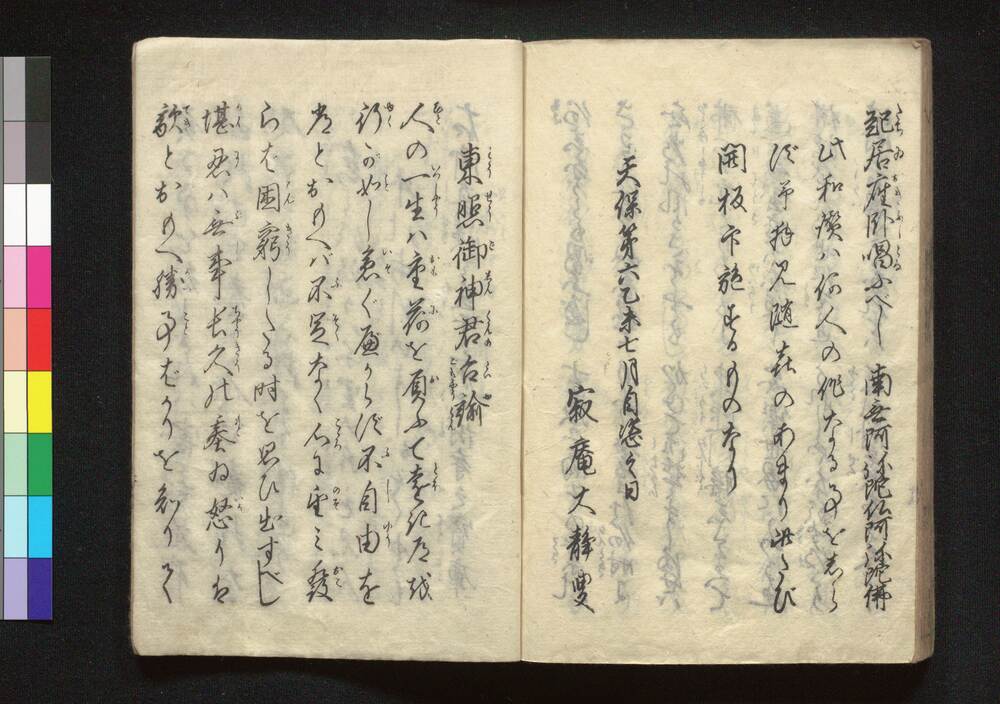 起居座臥唱ふべし 南無阿弥陀仏阿弥陀佛
此和讃ハ何人の作なる事をしら
ず予拝見随喜のあまり此たび
開板市施するものなり
天保第六乙未七月自恣之日
寂庵大静叟
東照御神君台諭
人の一生ハ重荷を負ふて遠き道を
行くが如し急ぐべからず不自由を
常とおもへバ不足なく心に望ミ發
らば困窮したる時を思ひ出すべし
堪忍ハ無事長久の基ゐ怒りは
敵とおもへ勝事ばかりを知りて